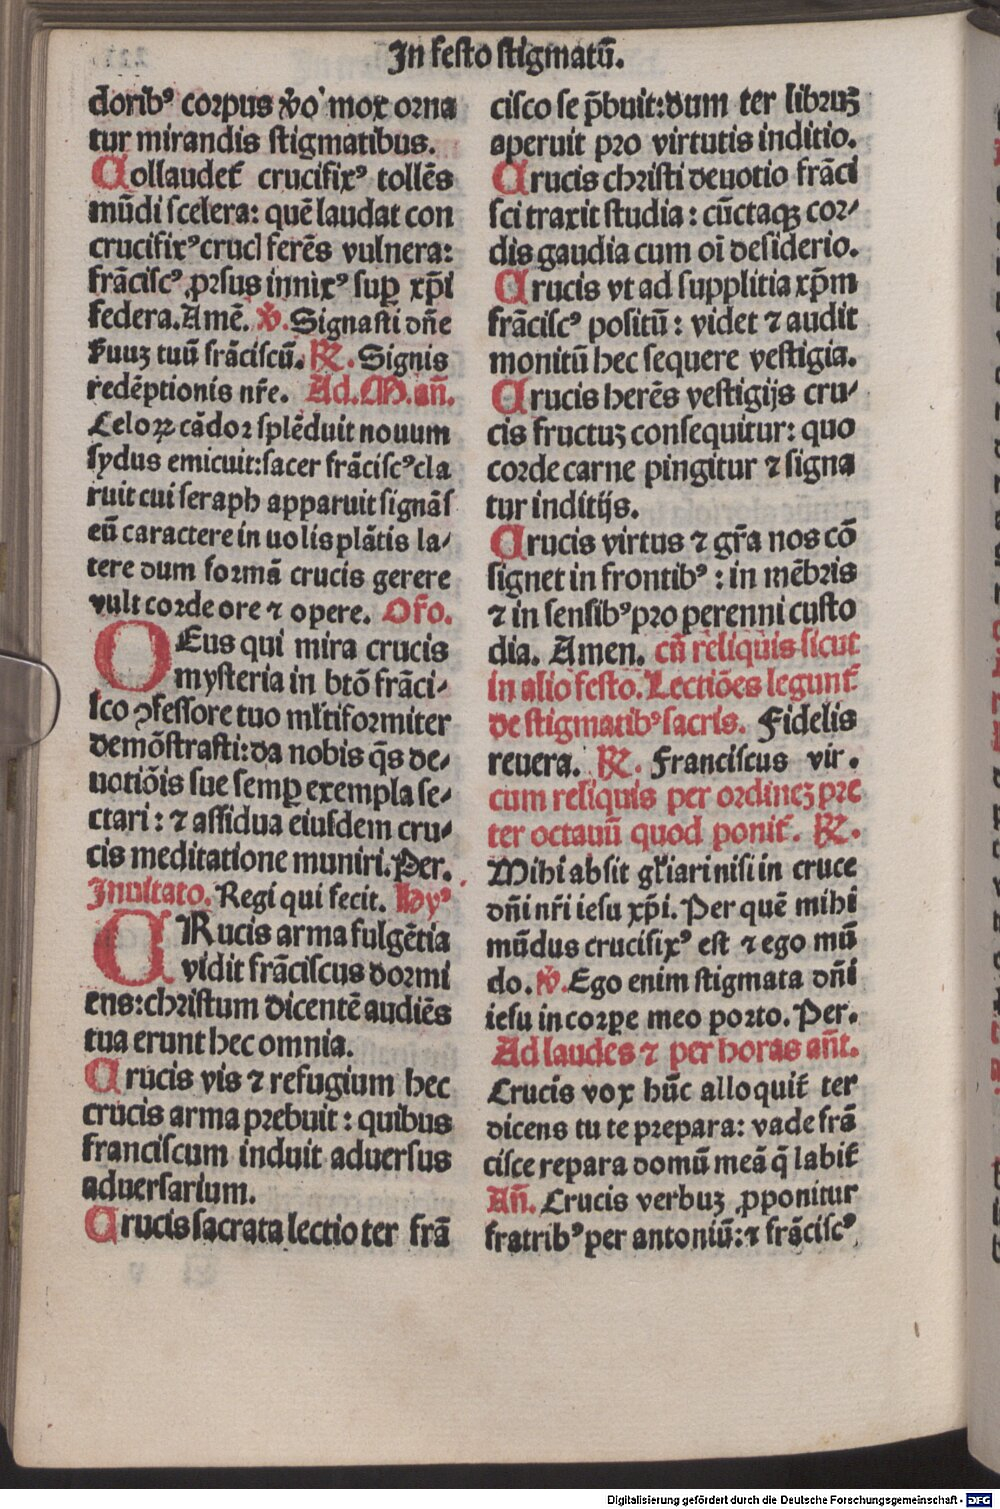 In festo stigmatū.
doribꝰ corpus v̄o mox orna
tur mirandis stigmatibus.
Collaudet̄ crucifixꝰ tollēs
mūdi scelera: quē laudat con
crucifixꝰ cruci ferēs vulnera:
frāciscꝰ ꝓrsus innixꝰ suꝑ xp̄i
federa. Amē. ℣. Signasti dn̄e
ẜuuꝫ tuū frāciscū. ℟. Signis
redēptionis nr̄e. Ad. M. an̄.
Celoꝝ cādor splēduit nouum
sydus emicuit: sacer frāciscꝰ cla
ruit cui seraph apparuit signās
eū caractere in uolis plātis la⸗
tere dum formā crucis gerere
vult corde ore ⁊ opere. Or̄o.
DEus qui mira crucis
mysteria in btō frāci⸗
sco ꝯfessore tuo ml̄tiformiter
demōstrasti: da nobis q̄s de⸗
uotiōis sue semꝑ exempla se⸗
ctari: ⁊ assidua eiusdem cru⸗
cis meditatione muniri. Per.
Inuitato. Regi qui fecit. Hyꝰ
CRucis arma fulgētia
vidit frāciscus dormi
ens: christum dicentē audiēs
tua erunt hec omnia.
Crucis vis ⁊ refugium hec
crucis arma prebuit: quibus
franciscum induit aduersus
aduersarium.
Crucis sacrata lectio ter frā
cisco se p̄buit: dum ter libruꝫ
aperuit pro virtutis inditio.
Crucis christi deuotio frāci
sci traxit studia: cūctaqꝫ cor⸗
dis gaudia cum oī desiderio.
Crucis vt ad supplitia xp̄m
frāciscꝰ positū: videt ⁊ audit
monitū hec sequere vestigia.
Crucis herēs vestigijs cru⸗
cis fructuꝫ consequitur: quo
corde carne pingitur ⁊ signa
tur inditijs.
Crucis virtus ⁊ gr̄a nos cō
signet in frontibꝰ: in mēbris
⁊ in sensibꝰ pro perenni custo
dia. Amen. cū reliquis sicut
in alio festo. Lectiōes legunt̄
de stigmatibꝰ sacris. Fidelis
reuera. ℟. Franciscus vir.
cum reliquis per ordineꝫ pre
ter octauū quod ponit̄. ℟.
Mihi absit gl̄iari nisi in cruce
dn̄i nr̄i iesu xp̄i. Per quē mihi
mūdus crucifixꝰ est ⁊ ego mū
do. ℣. Ego enim stigmata dn̄i
iesu in corpe meo porto. Per.
Ad laudes ⁊ per horas an̄t.
Crucis vox hūc alloquit̄ ter
dicens tu te prepara: vade frā
cisce repara domū meā q̄ labit̄
An̄. Crucis verbuꝫ ꝓponitur
fratribꝰ per antoniū: ⁊ frāciscꝰ
Digitalisierung gefördert durch die Deutsche Forschungsgemeinschaft - DFG